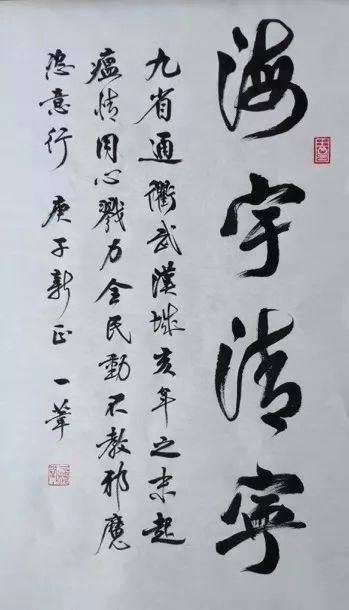 海宇清寧
九省通衢武漢城亥年之末起
瘟情同心戮力全民動不教邪魔
恣意行 庚子新正 一葦